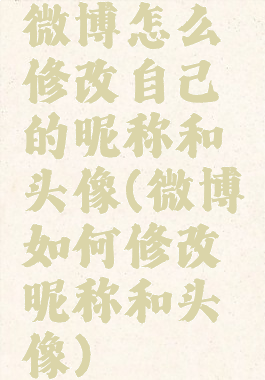 微博怎么
修改自己
的昵称和
头像(微博
如何修改
昵称和头
像)